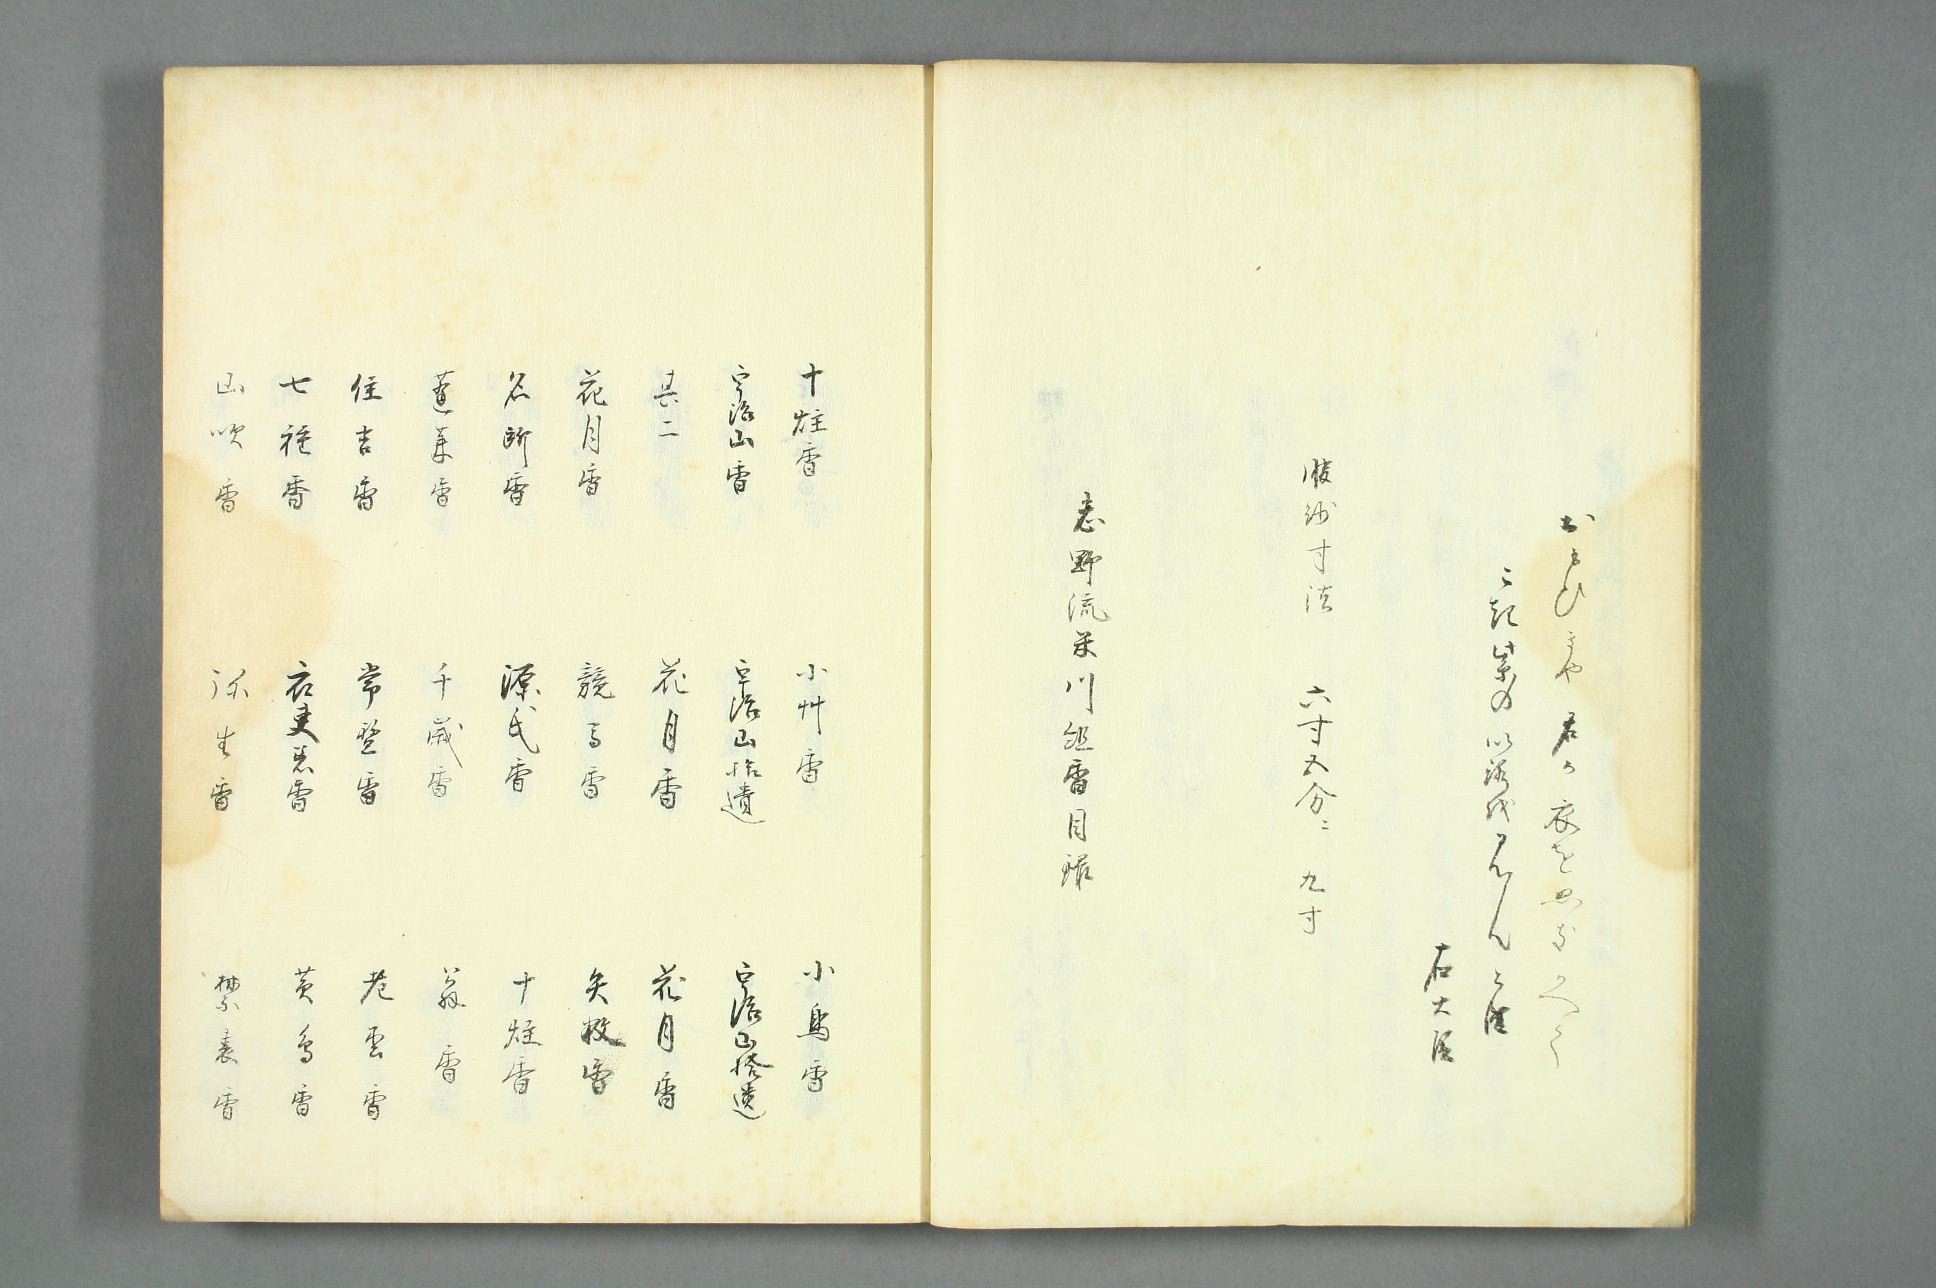 おもひきや 君か衣をぬきかへて
こ起紫の以路越きんとは
右大臣
服紗寸法 六寸五分ニ 九寸
志野流米川組香目録
十炷香 小艸香 小鳥香
宇治山香 宇治山拾遺 宇治山拾遺
其二 花月香 花月香
花月香 競馬香 矢数香
名所香 源氏香 十炷香
蓬莱香 千歳香 翁香
住吉香 常盤香 雲香
七種香 衣更着香 黄鳥香
山吹香 弥生香 禁裏香